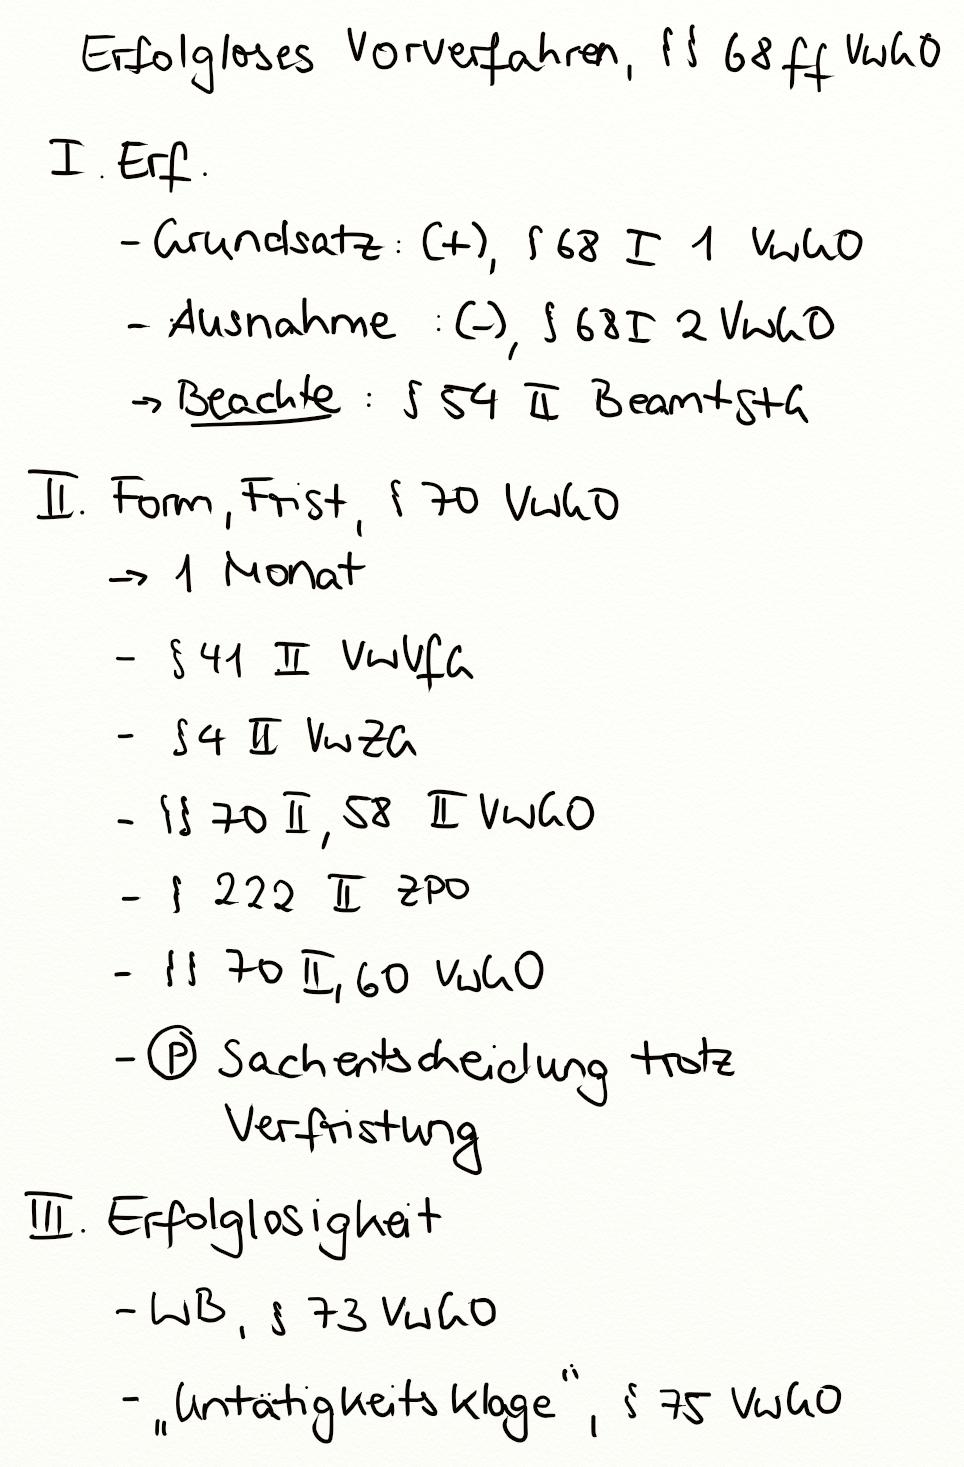 Erfolgloses Vorverfahren, §§ 68 ff VwGO
I. Erf.
- Grundsatz: (+), § 68 I 1 VwGO
- Ausnahme : (-), § 68 I 2 VwGO
→ Beachte : § 54 II BeamtStG
II. Form, Frist, § 70 VwGO
→ 1 Monat
- § 41 II VwVfG
- § 4 II VwZG
- §§ 70 II, 58 II VwGO
- § 222 II ZPO
- §§ 70 II, 60 VwGO
- Ⓟ Sachentscheidung trotz
Verfristung
III. Erfolglosigkeit
- WB, § 73 VwGO
- „Untätigkeitsklage", § 75 VwGO